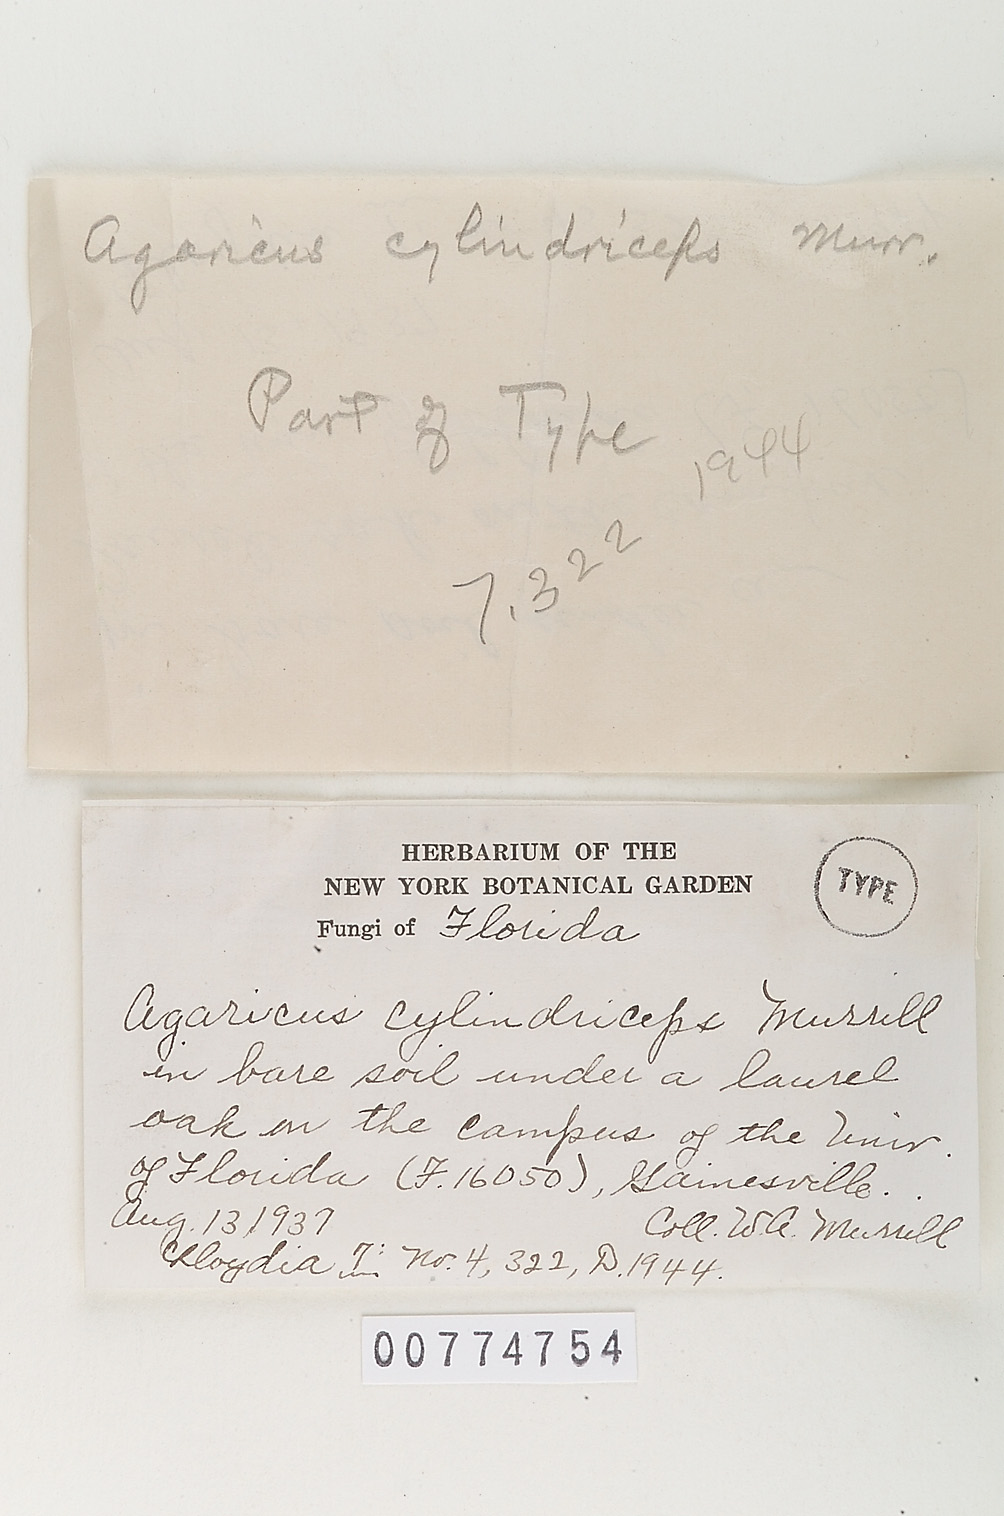 Agaricus cylindriceps Murr.
Part of Type
1944
7,322
HERBARIUM OF THE
NEW YORK BOTANICAL GARDEN
TYPE
Fungi of Florida
Agaricus cylindriceps Murrill
in bare soil under a laurel
oak on the campus of the Univ.
of Florida (F.16050), Gainesville.
Aug. 13 1937 Coll. W.A. Murrill
Lloydia 7: No. 4, 322, D. 1944.
00774754